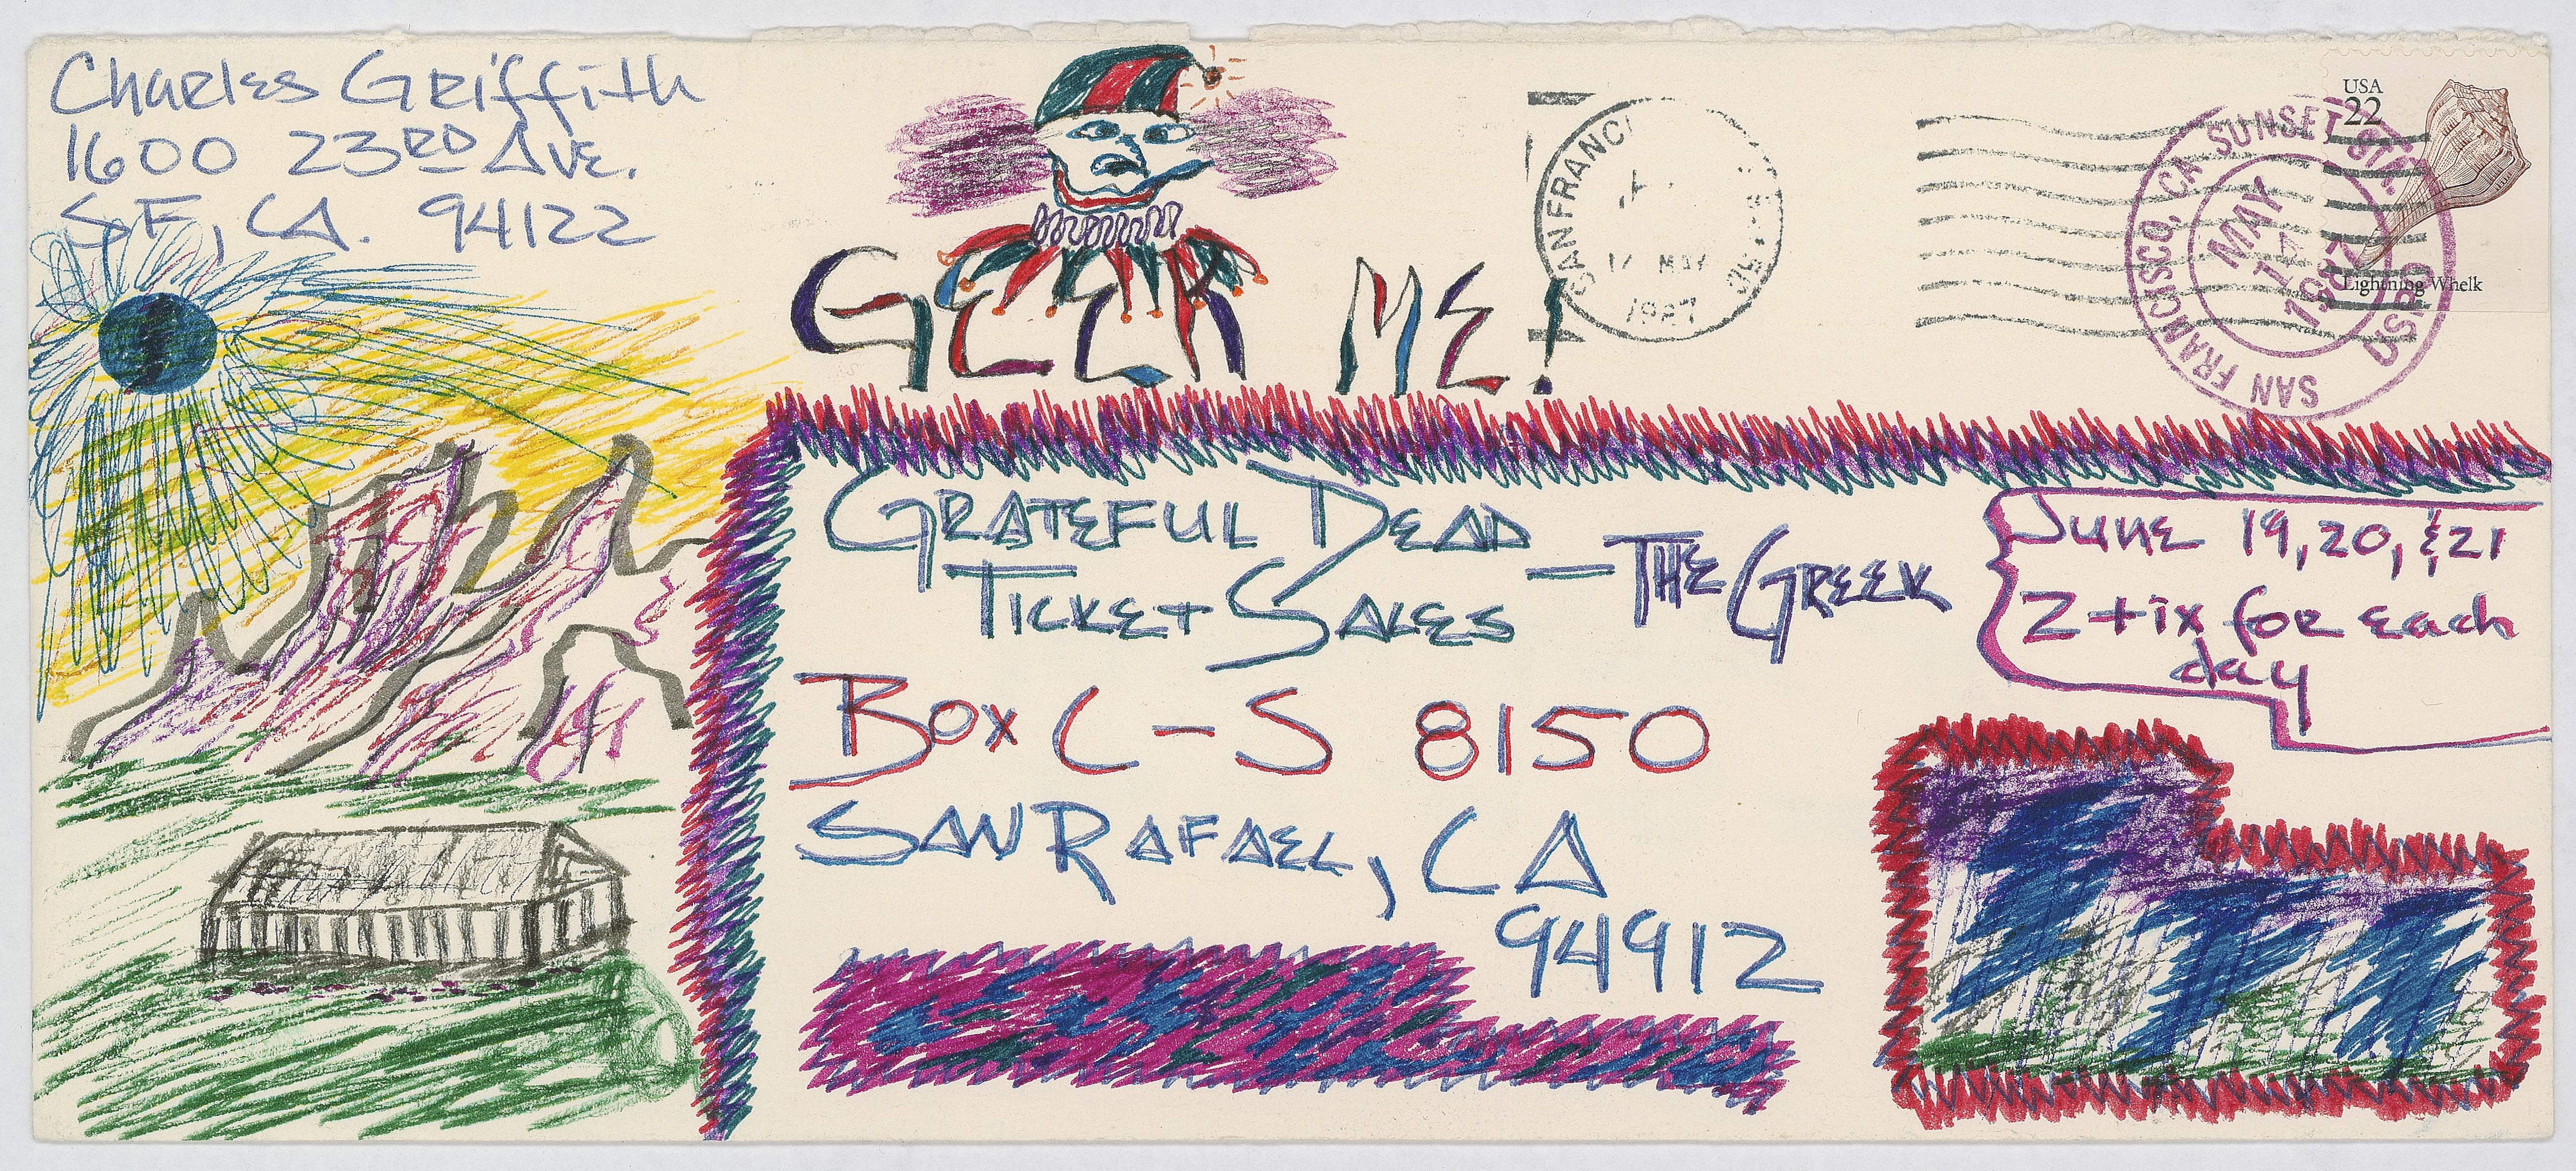 Charles Griffith
1600 23RD AVE.
SF, CA. 94122
GEEK ME!
SAN FRANCI
MAY
1987
USA
22
Lightning Whelk
SAN FRANCISCO, CA SUNSET STA.
USPO
MAY
1987
GRATEFUL DEAD
TICKET SALES
— THE GREEK
June 19, 20, & 21
2 tix for each
day
Box C-S 8150
SAN RAFAEL, CA
94912